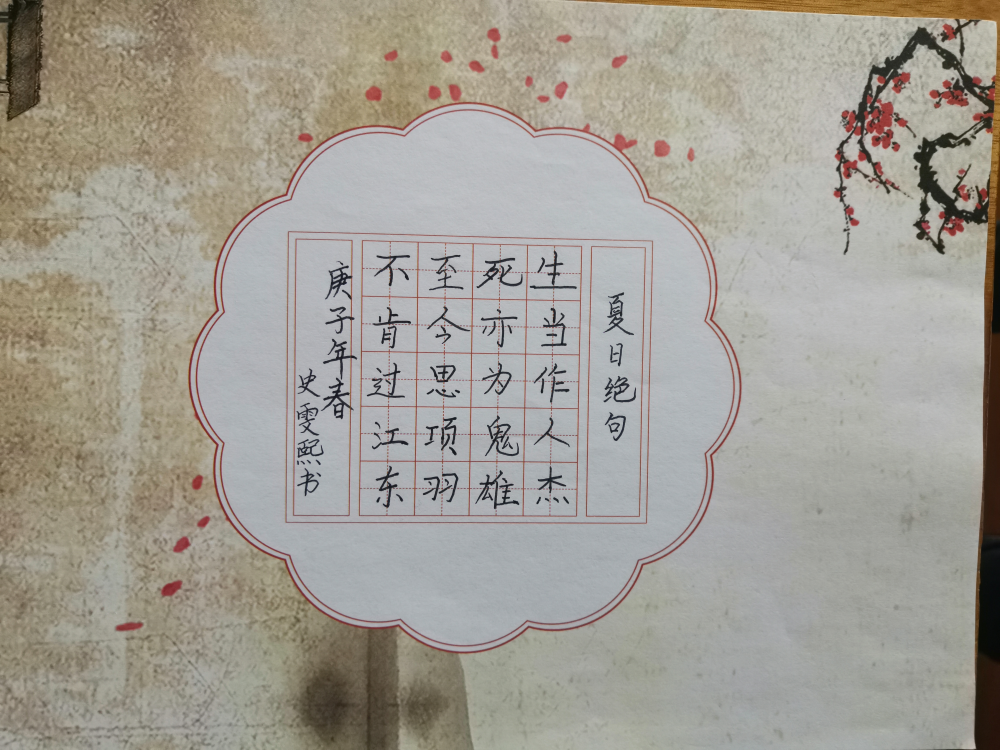 夏日绝句
生当作人杰
死亦为鬼雄
至今思项羽
不肯过江东
庚子年春
史雯熙书